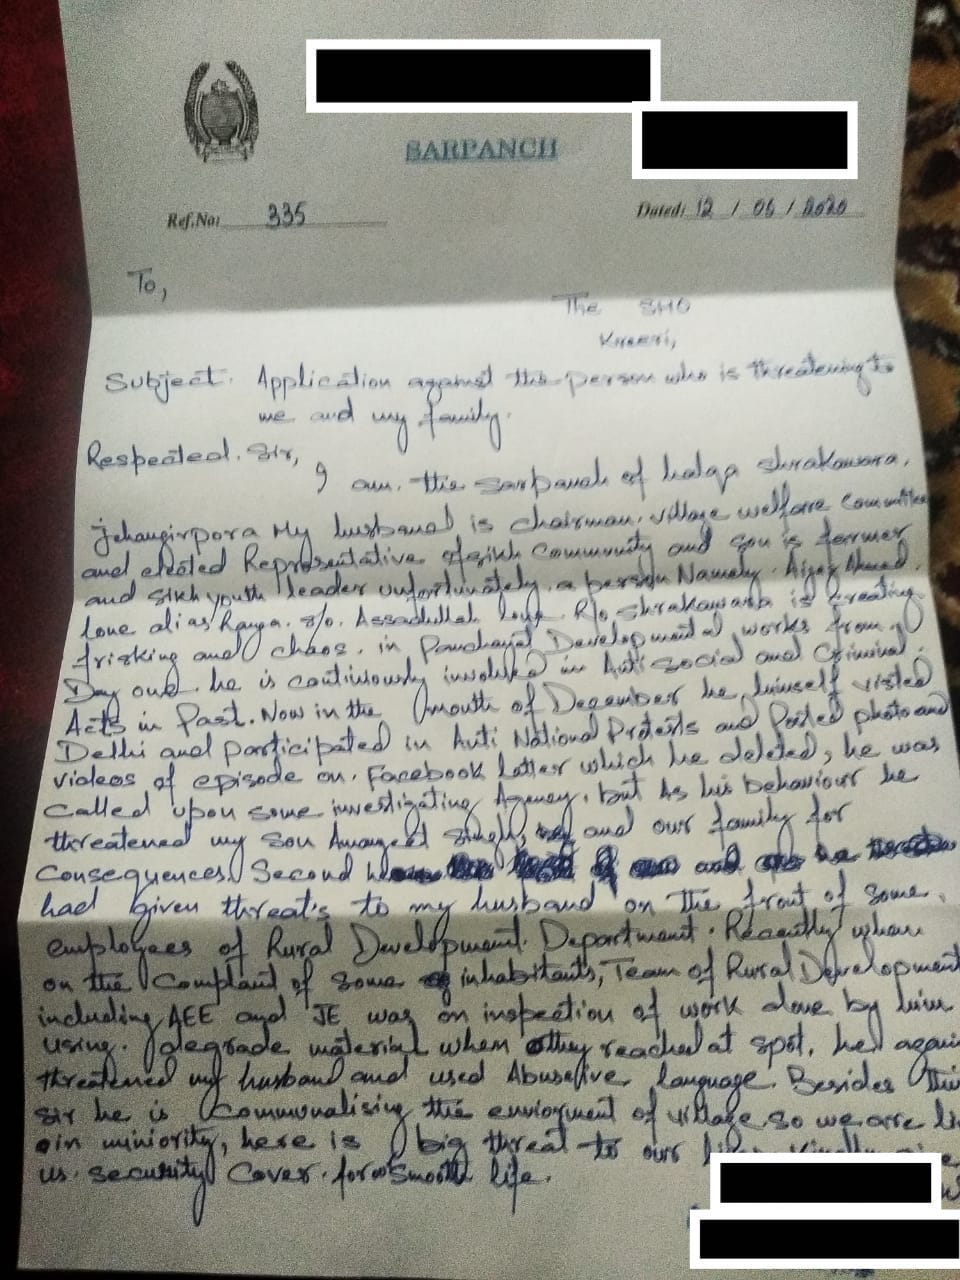 SARPANCH
Ref.No: 335
Dated: 12 / 05 / 2020
To,
The SHO
Kreeri,
Subject. Application against the person who is threatening to
me and my family.
Respeated. Sir,
I am. the sarpanch of halqa shrakawara,
jehangirpora My husband is chairman. village welfare Committee
and elected Representative of sikh Community and son is former
and sikh youth leader unfortunately. a person Namely. Aijaz Ahmad.
lone alias Ranga. S/o. Assadullah lone R/o Shrakawara is creating
frisking and chaos. in Panchayat Developmental works from
Day one. he is continuously involved in Anti social and Criminal.
Acts in Past. Now in the month of December he himself visted
Delhi and participated in Anti National Protests and Posted photo and
videos of episode on. Facebook latter which he deleted, he was
Called upon some investigating Agency. but As his behaviour he
threatened my son Amarjeet Singh, and our family for
Consequences. Second
had given threat's to my husband on the front of some.
employees of Rural Development. Department. Recently when
on the Complaint of some inhabitants, Team of Rural Development
including AEE and JE was on inspection of work done by him
using. degrade material when they reached at spot, he again
threatened my husband and used Abuseive language. Besides this
sir he is Communalising the enviorment of village so we are
in miniority, here is big threat to our
us. security Cover. for smooth life.